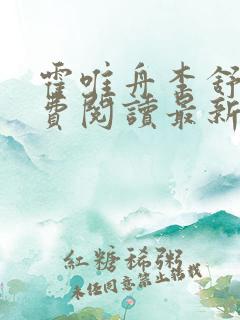 霍唯舟李舒
費閱讀最新
紅糖稀粥
未经同意禁止转载